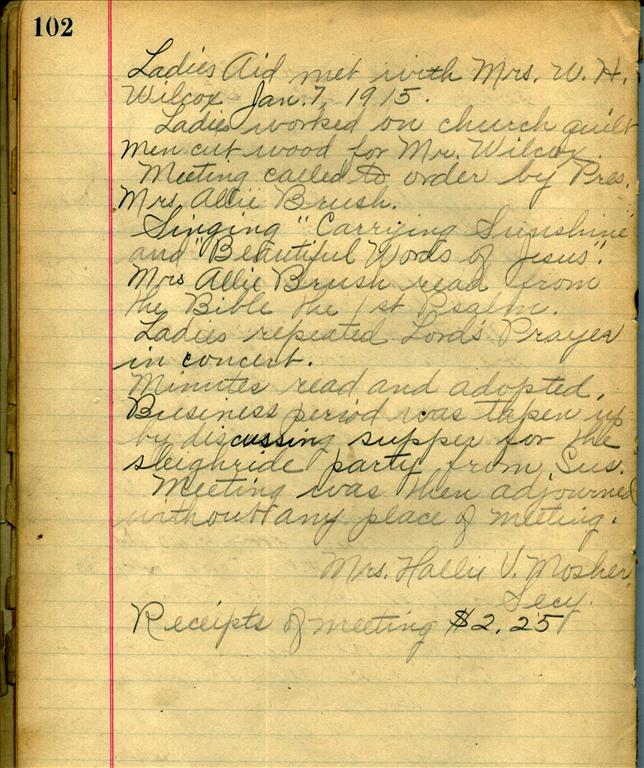 102
Ladies Aid met with Mrs. W. H.
Wilcox Jan. 7, 1915.
Ladies worked on church quilt
men cut wood for Mr. Wilcox.
Meeting called to order by Pres.
Mrs. Allie Brush.
Singing "Carrying Sunshine"
and "Beautiful Words of Jesus".
Mrs Allie Brush read from
the Bible the 1st Psalm.
Ladies repeated Lord's Prayer
in concert.
Minutes read and adopted.
Business period was tapen up
by discussing supper for the
sleighride party from Sus.
Meeting was then adjourned
without any place of meeting.
Mrs. Hallie V. Mosher,
Secy.
Receipts of meeting $2.25